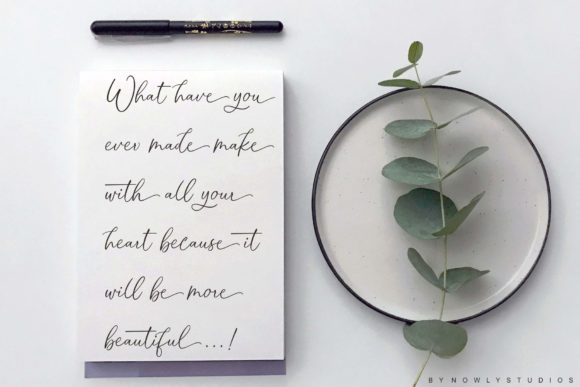 What have you
ever made make
with all your
heart because it
will be more
beautiful...!
BYNOWLYSTUDIOS